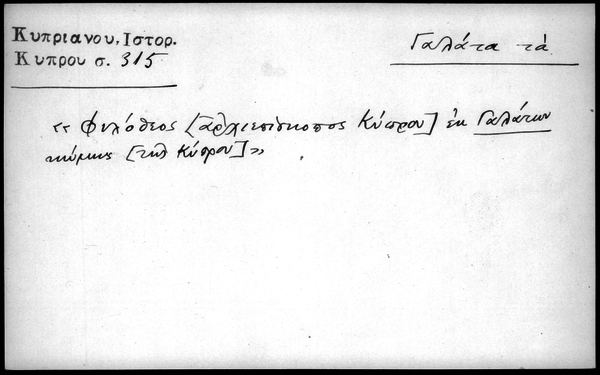 Κυπριανου, Ιστορ.
Κυπρου σ. 315
Γαλάτα τὰ
«Φιλόθεος [ἀρχιεπίσκοπος Κύπρου] ἐκ Γαλάτων
κώμης [τῆς Κύπρου]»